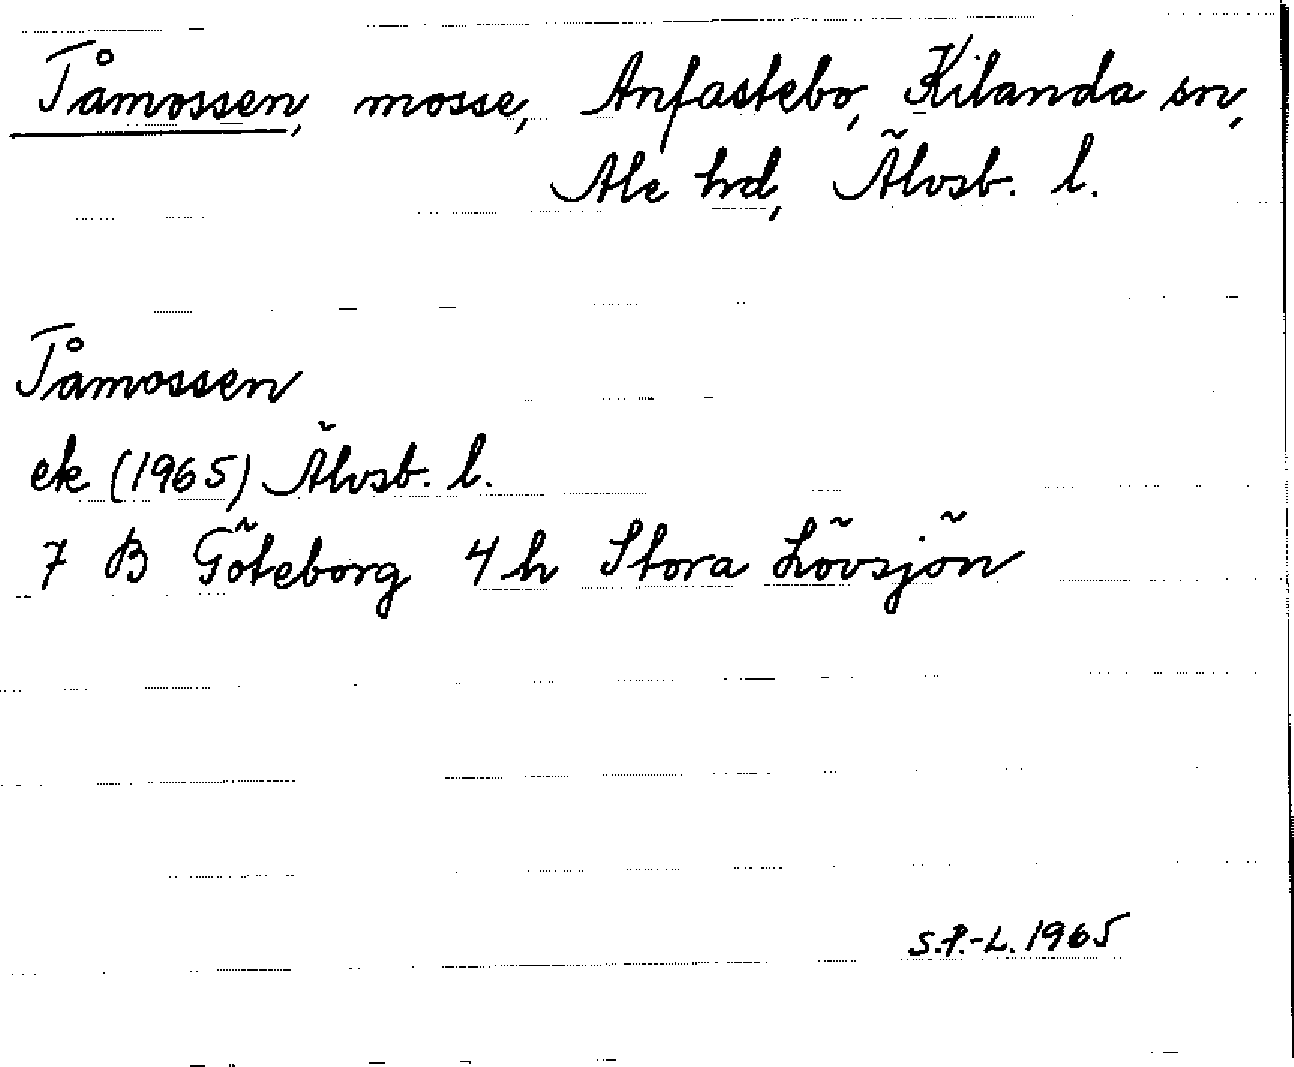 Tåmossen, mosse, Anfastebo, Kilanda sn,
Ale hd, Älvsb. l.
Tåmossen
ek (1965) Älvsb. l.
7 B Göteborg 4 h Stora Lövsjön
S.P.-L. 1965